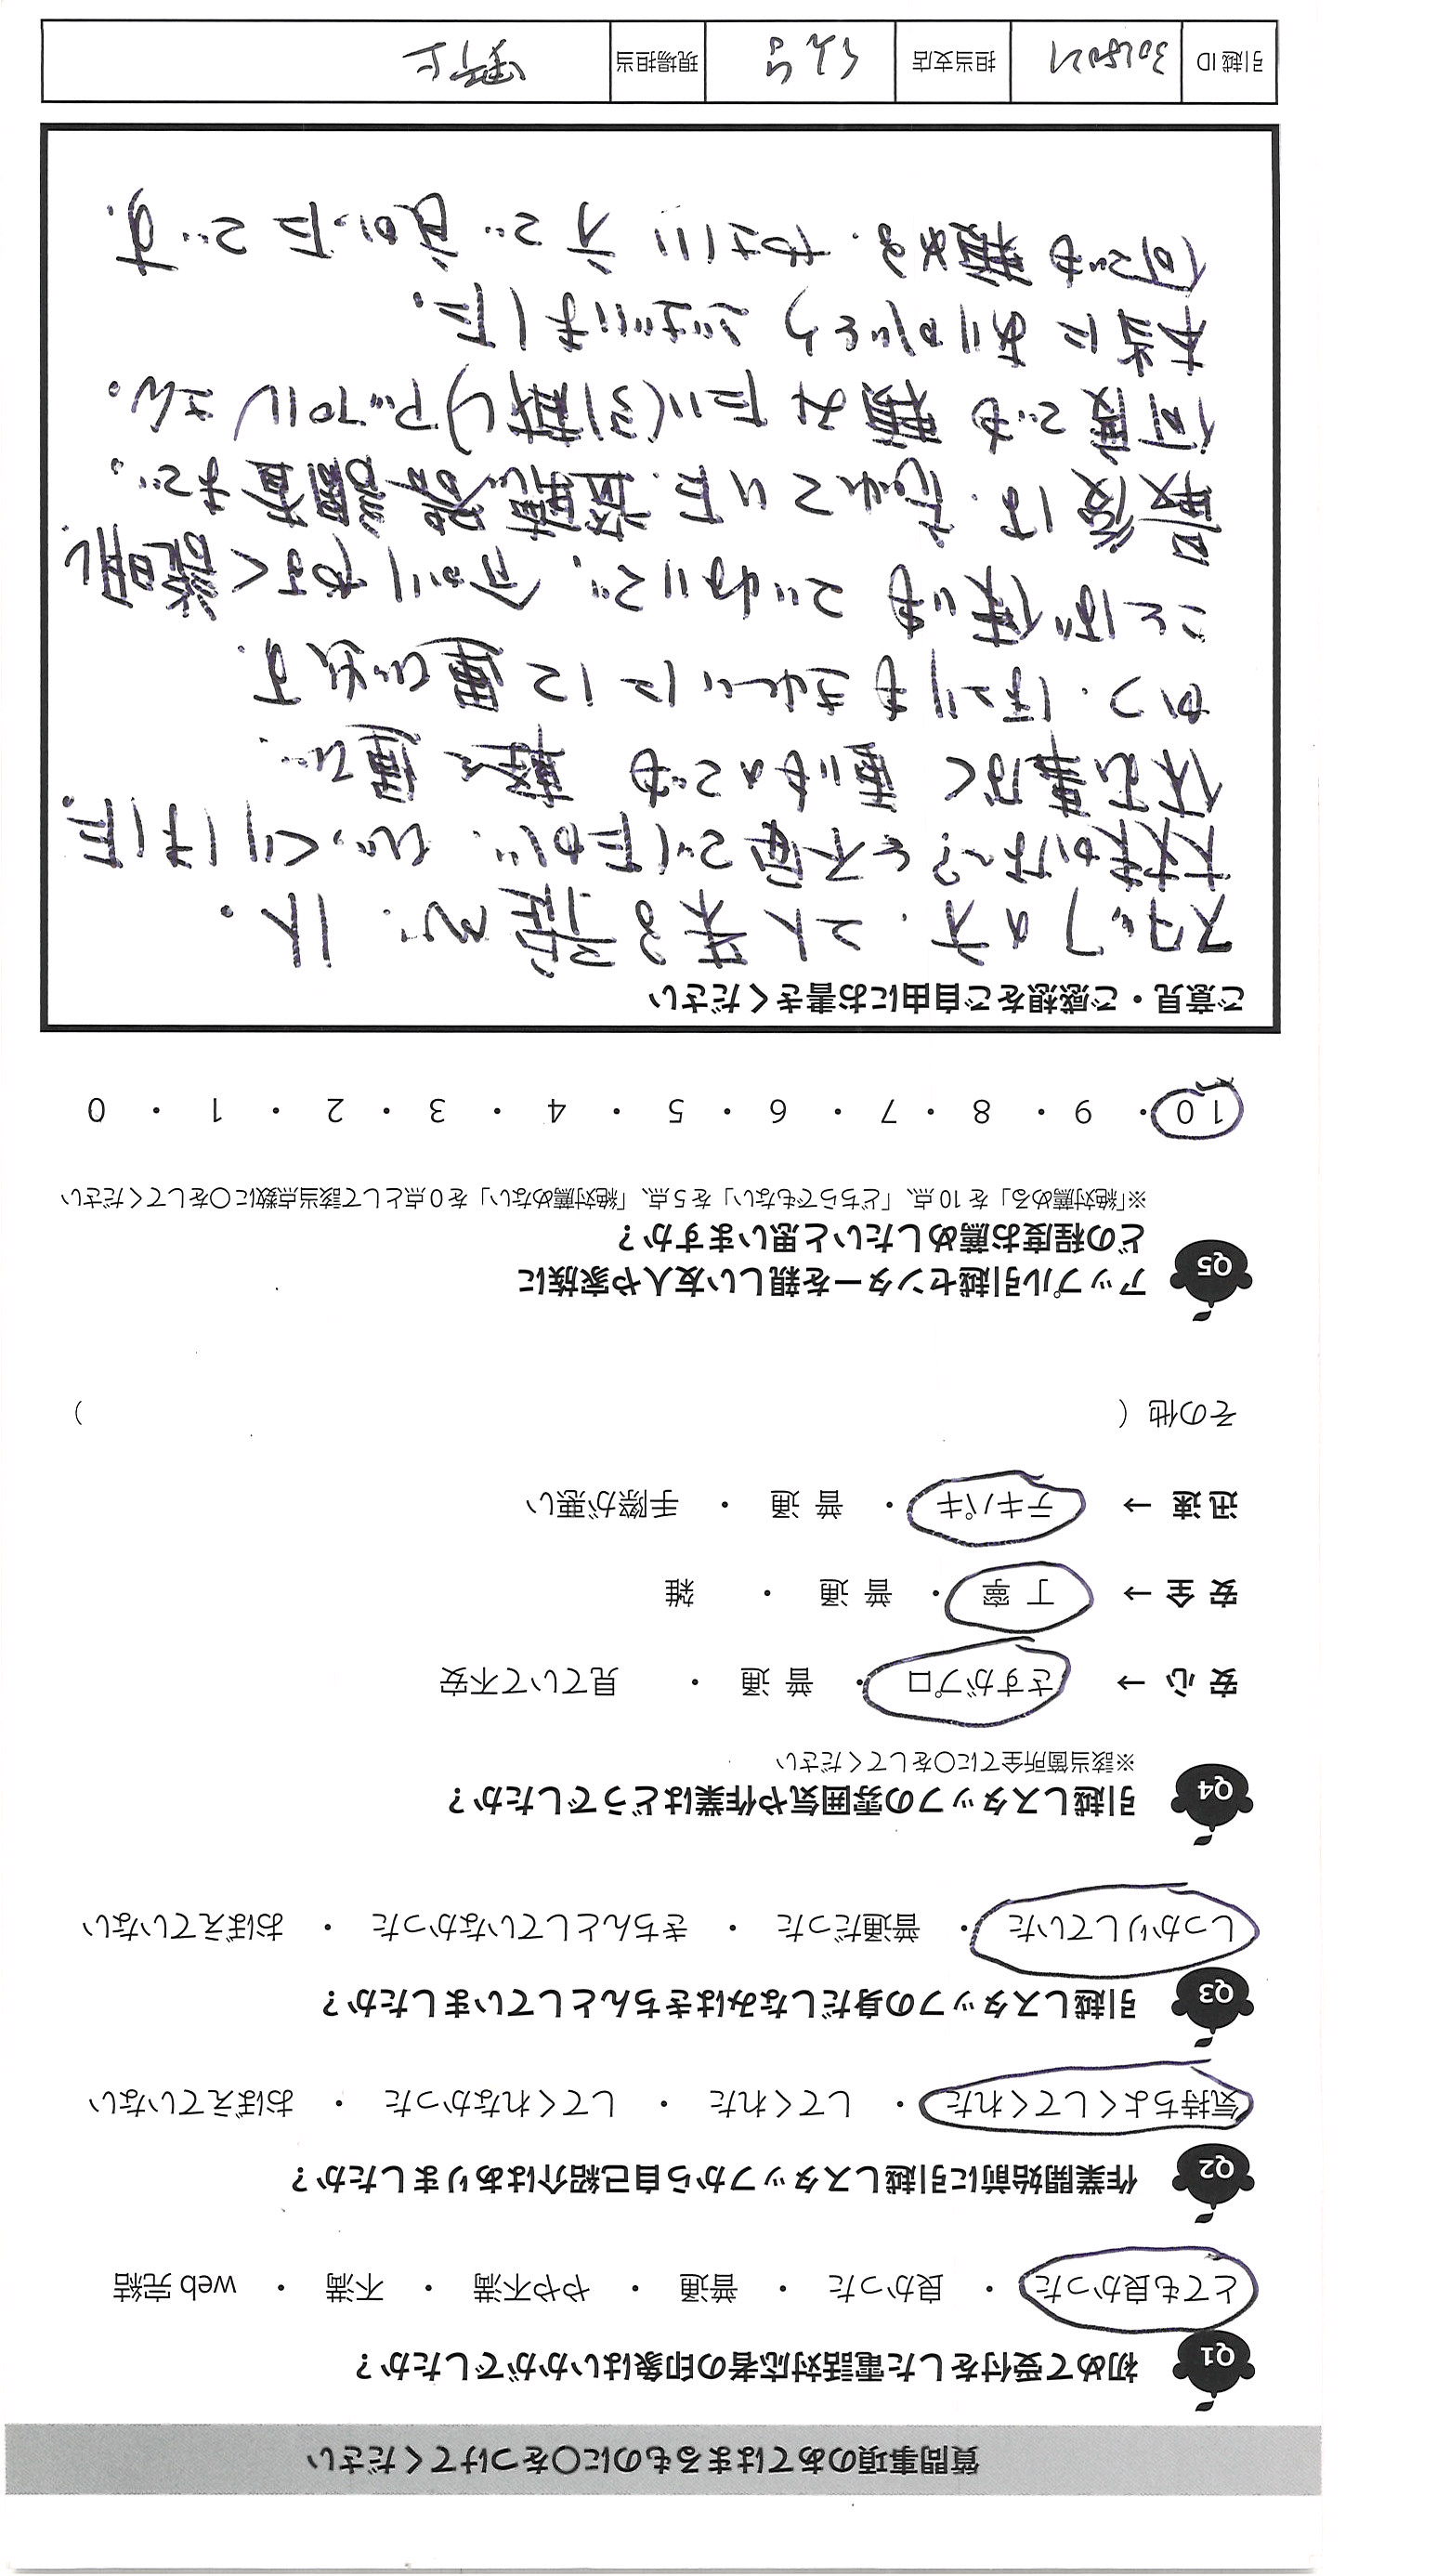 質問事項のあてはまるものに〇をつけてください
Q1 初めて受付をした電話対応者の印象はいかがでしたか？
とても良かった ・ 良かった ・ 普通 ・ やや不満 ・ 不満 ・ web 完結
Q2 作業開始前に引越しスタッフから自己紹介はありましたか？
気持ちよくしてくれた ・ してくれた ・ してくれなかった ・ おぼえていない
Q3 引越しスタッフの身だしなみはきちんとしていましたか？
しっかりしていた ・ 普通だった ・ きちんとしていなかった ・ おぼえていない
Q4 引越しスタッフの雰囲気や作業はどうでしたか？
※該当箇所全てに〇をしてください
安 心 → さすがプロ ・ 普 通 ・ 見ていて不安
安 全 → 丁 寧 ・ 普 通 ・ 雑
迅 速 → テキパキ ・ 普 通 ・ 手際が悪い
その他（ ）
Q5 アップル引越センターを親しい友人や家族に
どの程度お薦めしたいと思いますか？
※「絶対薦める」を 10 点、「どちらでもない」を 5 点、「絶対薦めない」を 0 点として該当点数に〇をしてください
10 ・ 9 ・ 8 ・ 7 ・ 6 ・ 5 ・ 4 ・ 3 ・ 2 ・ 1 ・ 0
ご意見・ご感想をご自由にお書きください
スタッフの方、2人来る予定が、1人。
大丈夫かな〜?と不安でしたが、びっくりしました。
休む事なく重いものでも軽々運び、
かつ、ほこりもきれいにして運び出す。
ことば使いもていねいで、分かりやすく説明し、
最後は、忘れていた盗聴器調査まで。
何度でも頼みたい(引越し)アップルさん。
本当にありがとうございました。
何でも頼める、やさしい方で良かったです。
引越 ID 3015021 担当支店 現場担当 野上